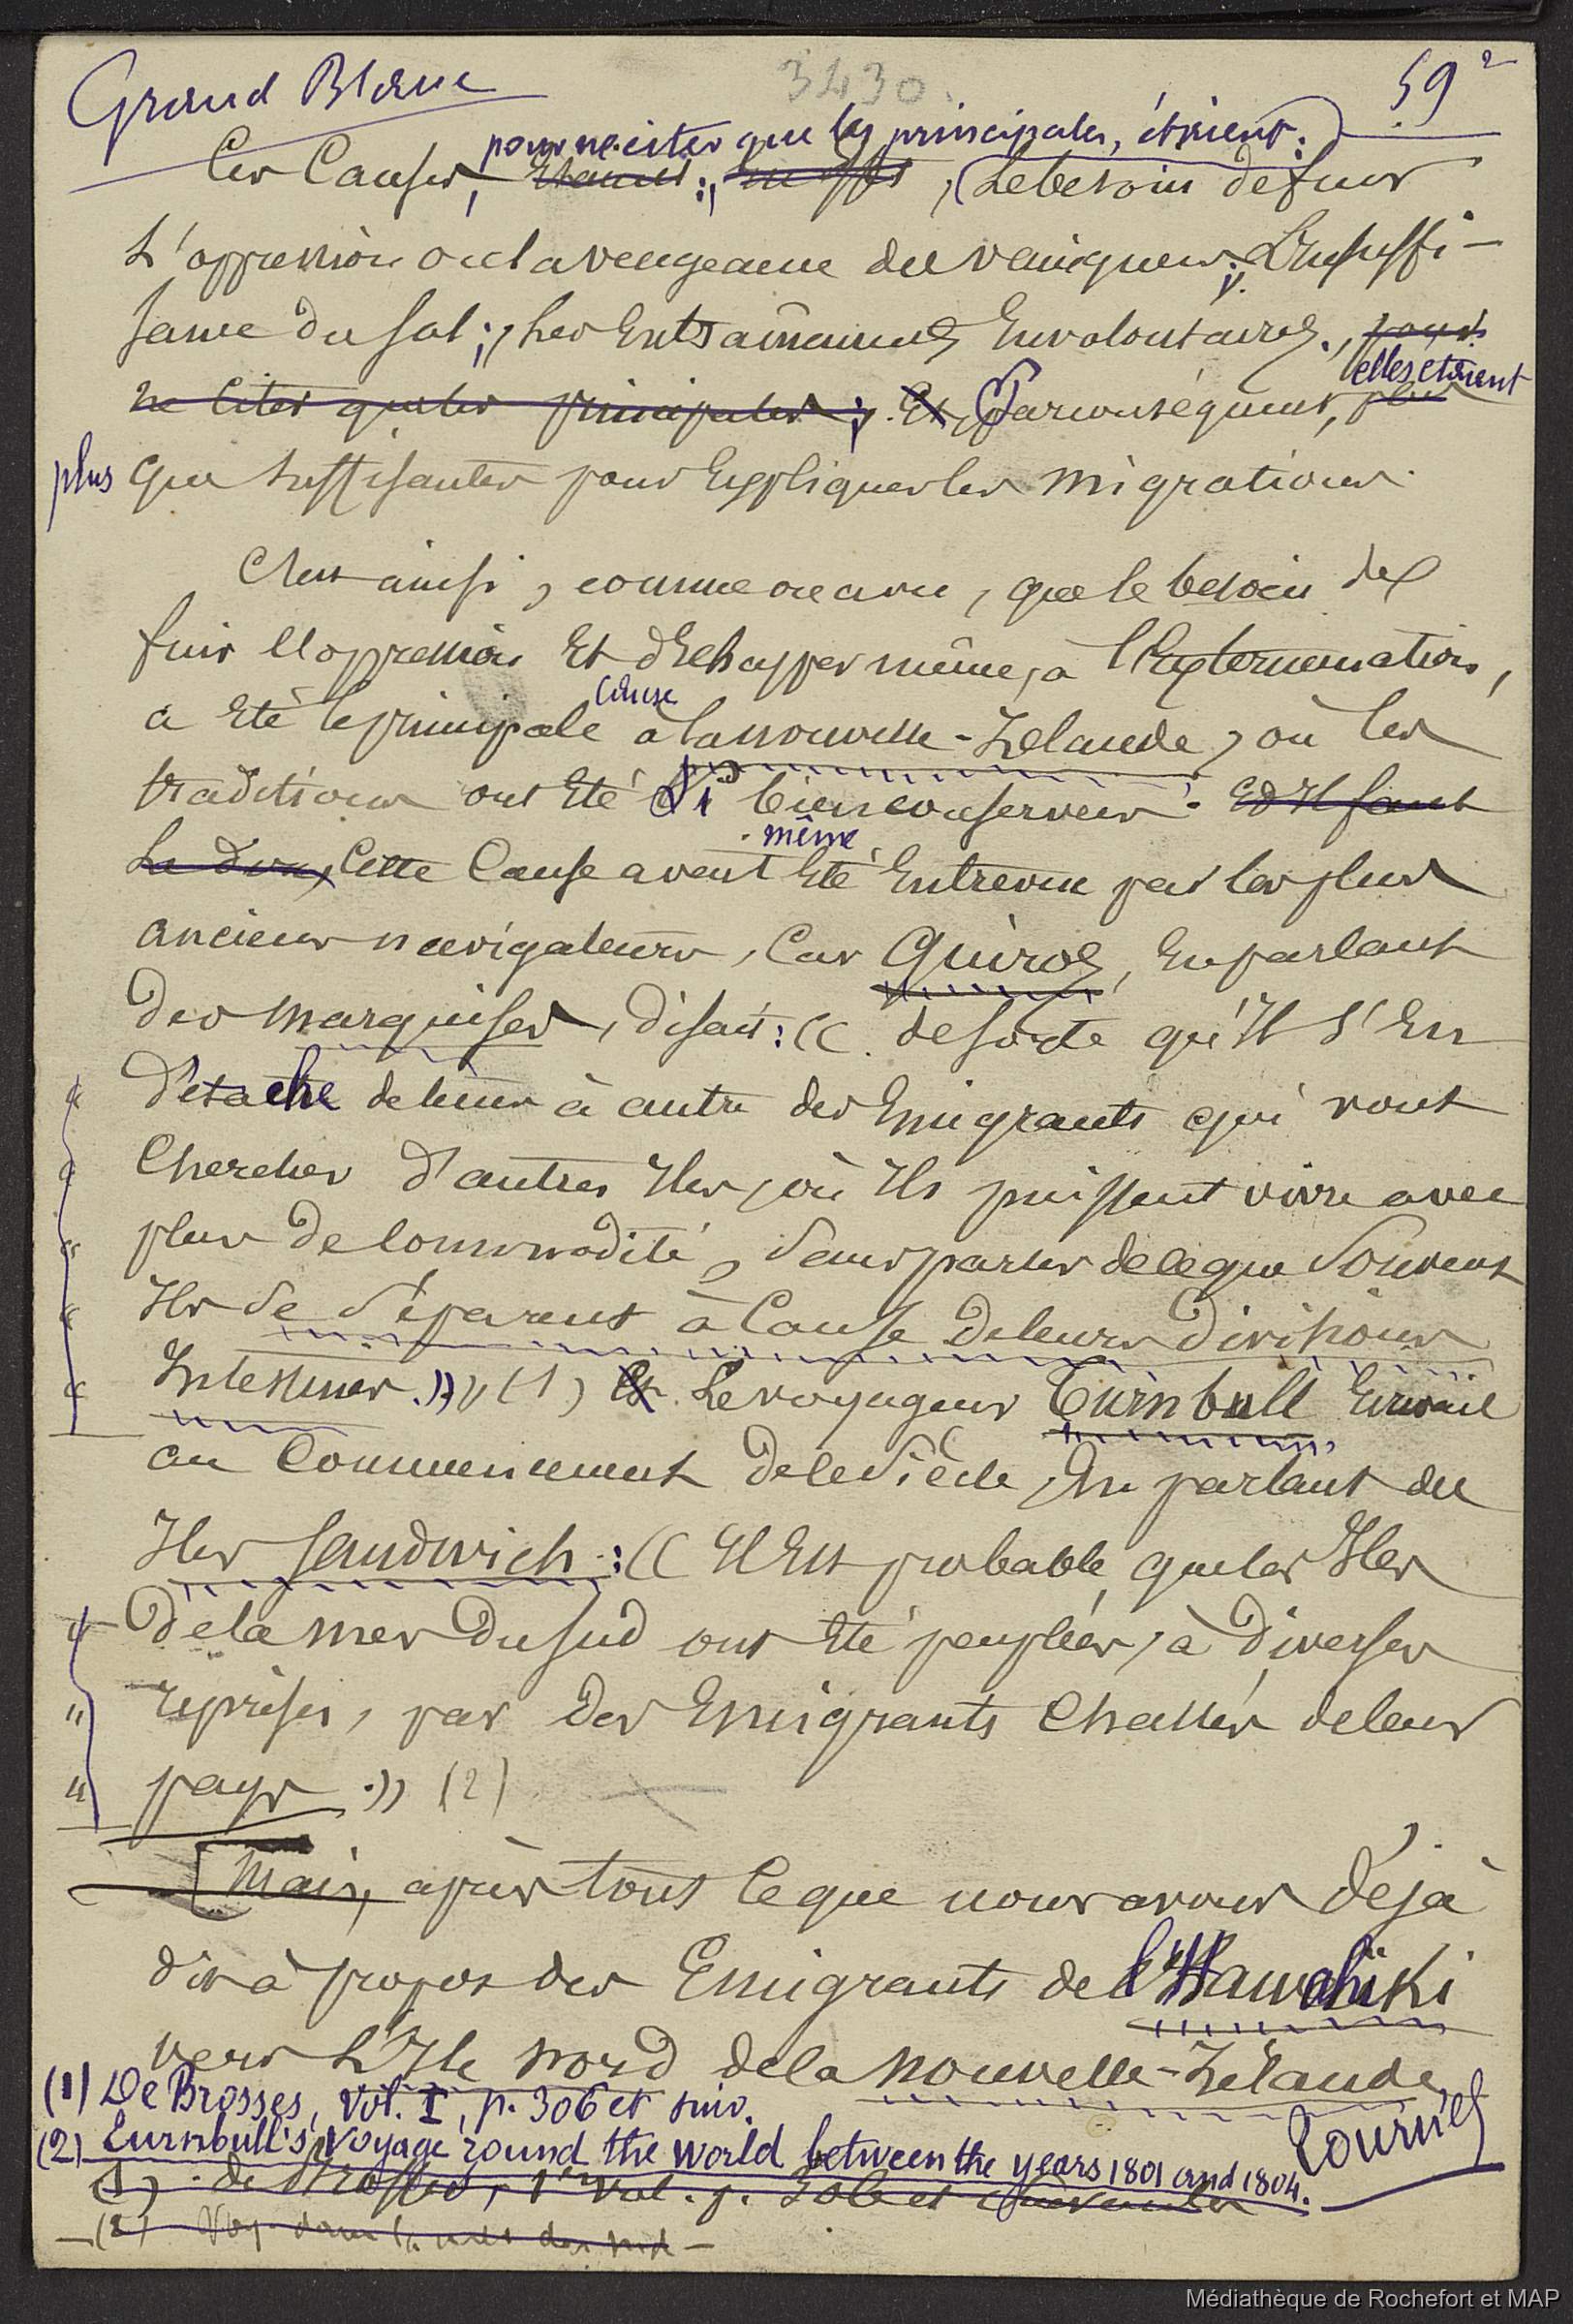 Grand Blanc
3430.
59²
pour ne citer que les principales, étaient:
Ces Causes, Etaient:, en effet, Le besoin de fuir
L'oppression ou la vengeance du vainqueur; L'insuffi-
sance du sol; Les Entraînements Involontaires, pour
ne citer que les principales; Et, Par conséquent, plus
elles étaient
plus que suffisantes pour Expliquer les migrations.
C'est ainsi, comme on a vu, que le besoin de
fuir l'oppression Et d'Echapper même, à l'Extermination,
cause
a Eté la principale à la nouvelle-Zélande, où les
traditions ont Eté si bien conservées. Et Il faut
même
Le dire, Cette Cause avait Eté Entrevue par les plus
anciens navigateurs, Car Quiros, En parlant
Des Marquises, Disait: (( de sorte qu'Il s'En
« Détache de tems à autre des Emigrants qui vont
« Chercher d'autres Iles, où Ils puissent vivre avec
« plus de Commodité, sans parler de ce que souvent
« Ils se séparent à Cause de leurs divisions
« Intestines.)) (1) Et Le voyageur Turnbull Ecrivait
au Commencement de ce siècle, En parlant des
Iles Sandwich: (( Il Est probable que les Iles
« de la mer du sud ont Eté peuplées, à diverses
" reprises, par des Emigrants Chassés de leur
" pays.)) (2)
[Mais, après tout ce que nous avons déjà
dit à propos des Emigrants de l'Hawahiki
vers L'Ile nord de la nouvelle-Zélande,
(1) De Brosses, Vol. I, p. 306 et suiv.
tournez
(2) Turnbull's Voyage round the world between the years 1801 and 1804.
(1) de Brosses, 1er Vol. p. 306 et suivantes
(2) Voy. dans la mer du sud
Médiathèque de Rochefort et MAP